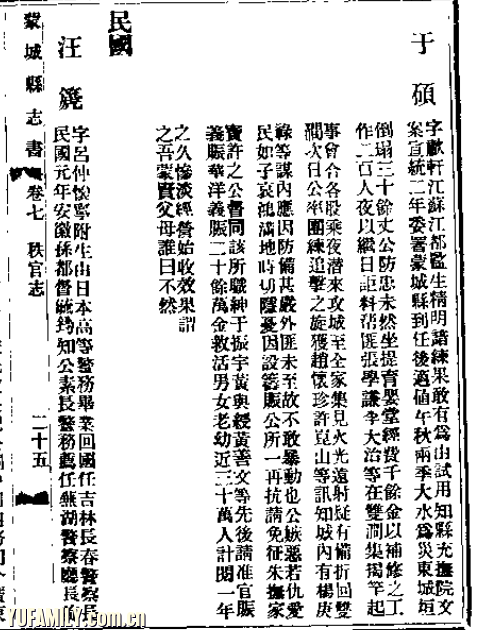 于碩
字獻軒江蘇江都監生精明諳練果敢有為由試用知縣充撫院文
案宣統二年委署蒙城縣到任後適值午秋兩季大水為災東城垣
倒塌三十餘丈公防患未然坐提育嬰堂經費千餘金以補修之工
作二百人夜以繼日詎料幫匪張學謙李大治等在雙澗集揭竿起
事會合各股乘夜潛來攻城至全家集見火光遠射疑有備折回雙
澗次日公率團練追擊之旋獲趙懷珍許崑山等訊知城內有楊庚
祿等謀內應因防備甚嚴外匪未至故不敢暴動也公嫉惡若仇愛
民如子哀鴻滿地時切隱憂因設籌賑公所一再抗請免征朱撫家
寶許之公督同該所職紳于振宇黃與綬黃善文等先後請准官賑
義賑華洋義賑二十餘萬金救活男女老幼近三十萬人計閱一年
之久慘淡經營始收效果謂
之吾蒙賢父母誰曰不然
民國
汪篪
字呂仲懷寧附生由日本高等警務畢業回國任吉林長春警察長
民國元年安徽孫都督毓筠知公素長警務薦任蕪湖警察廳長
蒙城縣志書
卷七
秩官志
二十五
YUFAMILY.com.cn